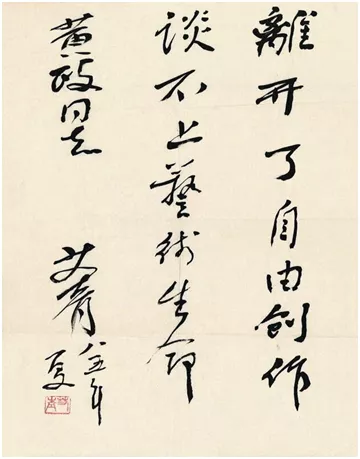 離开了自由创作
谈不上藝術生命
黄政同志
艾青
八五年
夏